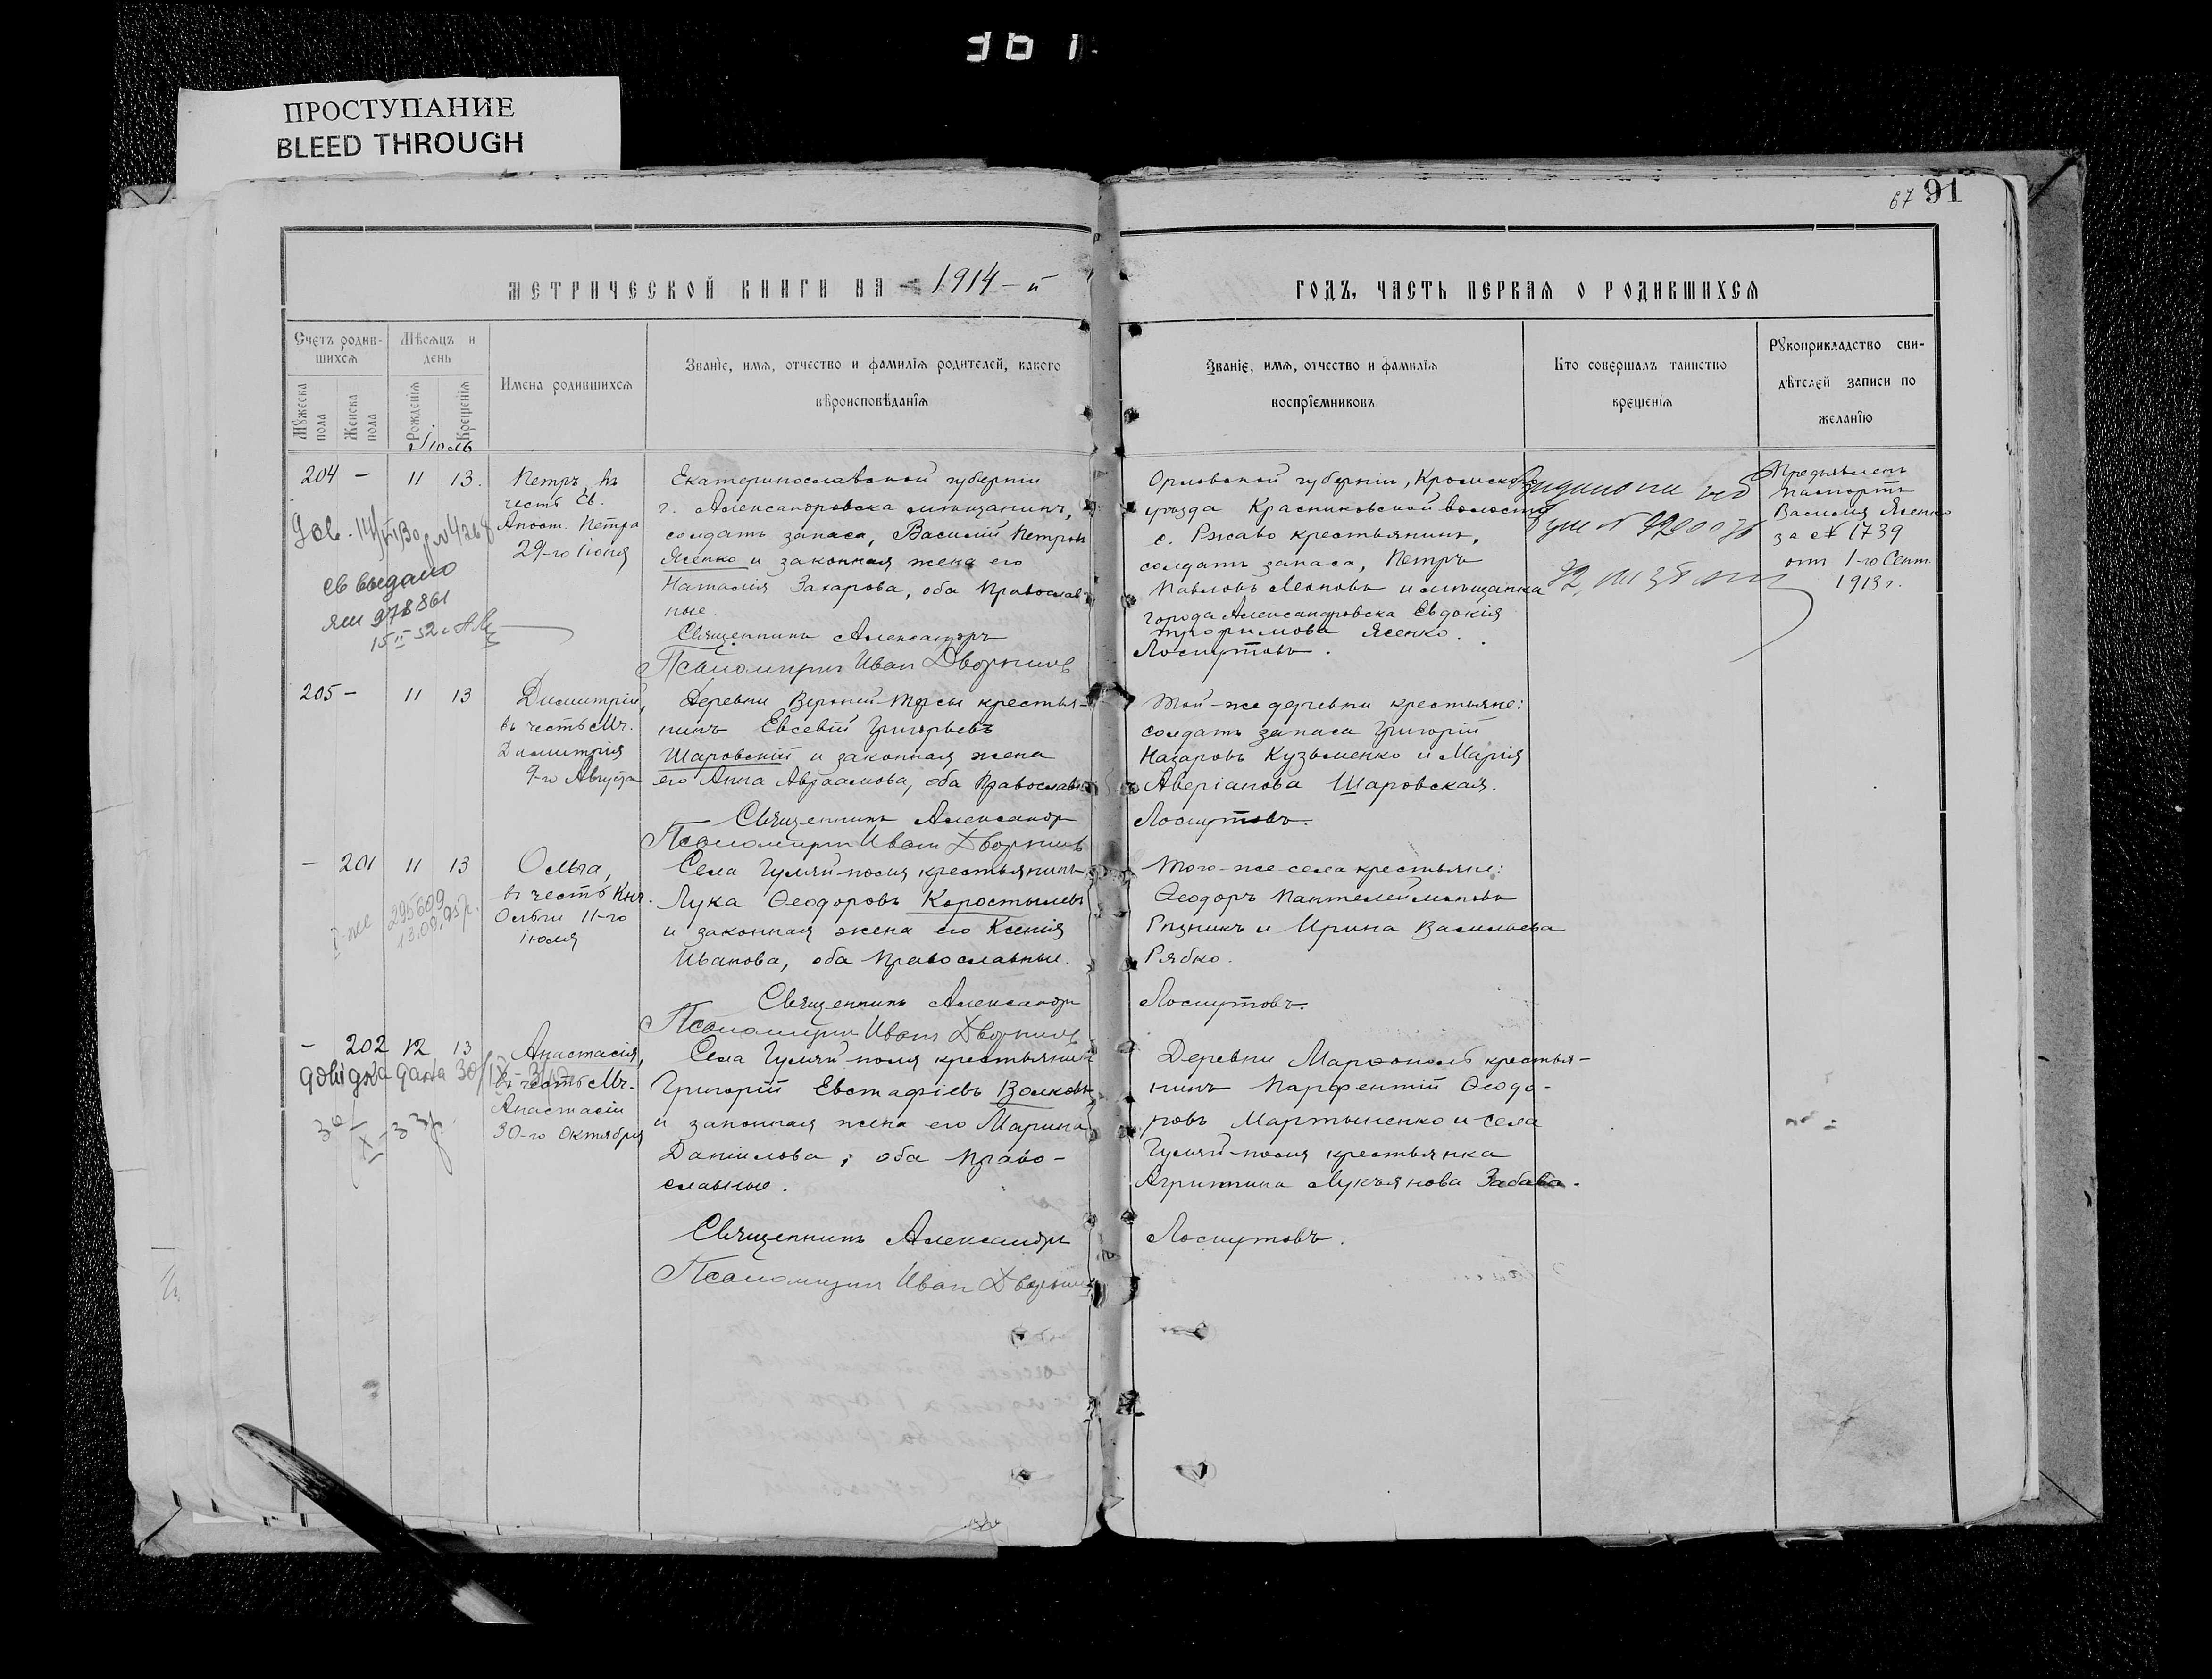 361
ПРОСТУПАНИЕ
BLEED THROUGH
67 91
МЕТРИЧЕСКОЙ КНИГИ НА 1914-й
ГОДЪ, ЧАСТЬ ПЕРВАЯ О РОДИВШИХСЯ
Счетъ родив-
шихся
Мужеска
пола
Женска
пола
Мѣсяцъ и
день
Рожденія
Крещенія
Имена родившихся
Званіе, имя, отчество и фамилія родителей, какого
вѣроисповѣданія
Званіе, имя, отчество и фамилія
воспріемниковъ
Кто совершалъ таинство
крещенія
Рукоприкладство сви-
дѣтелей записи по
желанію
Іюль
204 - 11 13.
Петръ въ
честь Св.
Апост. Петра
29-го іюня
св выдано
яш 978861
15 II 32 г
Екатеринославской губерніи
г. Александровска мѣщанинъ,
солдатъ запаса, Василій Петровъ
Ясенко и законная жена его
Наталія Захарова, оба православ-
ные.
Священникъ Александръ
Псаломщикъ Иван Дворник
Орловской губерніи, Кромскаго
уѣзда Красниковской волости
с. Ржаво крестьянинъ,
солдатъ запаса, Петръ
Павловъ Леоновъ и мѣщанка
города Александровска Евдокія
Трофимова Ясенко.
Лоскутовъ.
Предъявленъ
паспортъ
Василія Ясенко
за № 1739
отъ 1-го Сент.
1913 г.
205 - 11 13
Димитрій,
въ честь Мч.
Димитрія
9-го Августа
Деревни Верхней-Терсы крестья-
нинъ Евсевій Григорьевъ
Шаровскій и законная жена
его Анна Авраамова, оба православ
Священникъ Александр
Псаломщик Иван Дворник
Той-же деревни крестьяне:
солдатъ запаса Григорій
Назаровъ Кузьменко и Марія
Аверіанова Шаровская.
Лоскутовъ.
- 201 11 13
295609
13.09.
Ольга,
въ честь Кн.
Ольги 11-го
іюля
Села Гуляй-поля крестьянинъ
Лука Ѳеодоровъ Коростылевъ
и законная жена его Ксенія
Иванова, оба православные.
Священникъ Александр
Псаломщик Иван Дворник
Того-же села крестьяне:
Ѳеодоръ Пантелеймоновъ
Рѣзникъ и Ирина Васильева
Рябко.
Лоскутовъ.
- 202 12 13
довідка дана 30/IX
30/X-33р
Анастасія,
въ честь Мч.
Анастасіи
30-го Октября
Села Гуляй-поля крестьянинъ
Григорій Евстафіевъ Волковъ
и законная жена его Марина
Даніилова, оба право-
славные.
Священникъ Александръ
Псаломщик Иван Дворник
Деревни Марфополь крестья-
нинъ Парфентій Ѳеодо-
ровъ Мартыненко и села
Гуляй-поля крестьянка
Агриппина Лукъянова Забава.
Лоскутовъ.